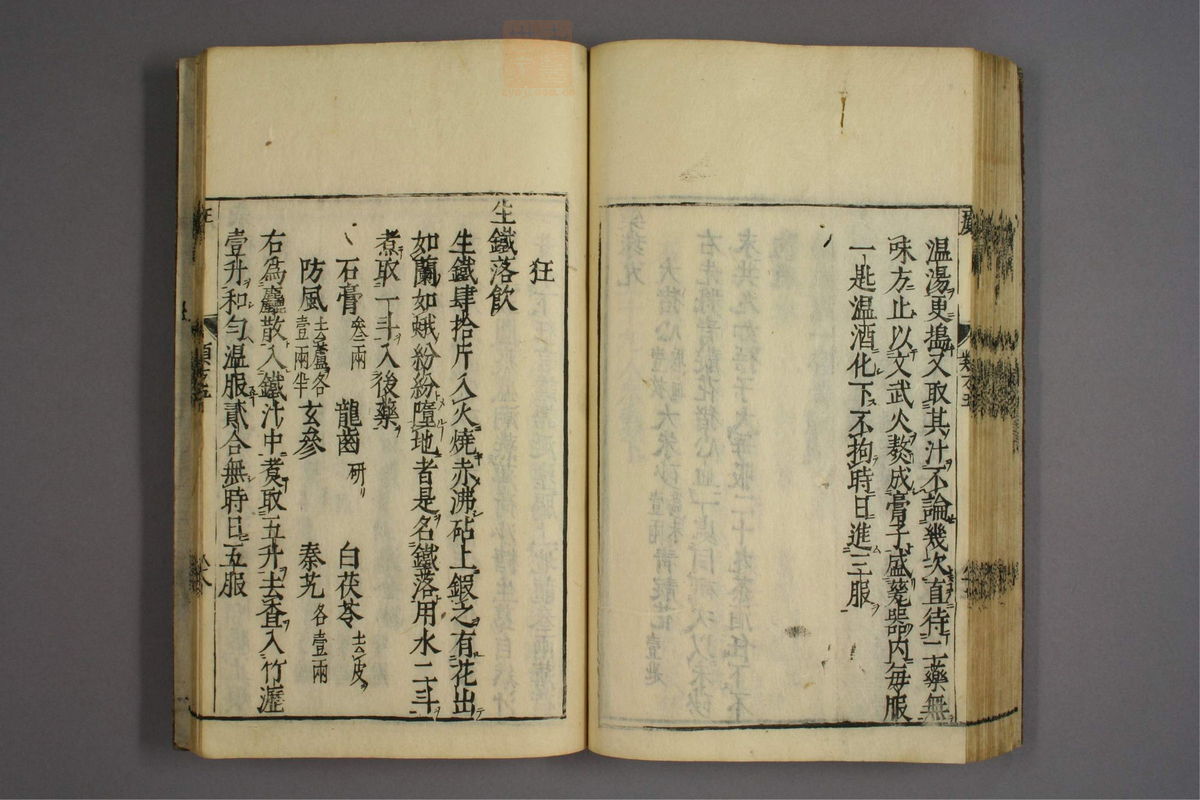 温湯更搗又取其汁不論幾次直待二藥無
味方止以文武火熬成膏子盛甆器内毎服
一匙温酒化下不拘時日進三服
狂
生鐵落飲
生鐵肆拾斤入火燒赤沸砧上鍜之有花出
如蘭如蛾紛紛墮地者是名鐵落用水二斗
煮取一斗入後藥
石膏叁兩 龍齒研 白茯苓去皮
防風去蘆各壹兩半 玄參 秦艽各壹兩
右爲麤散入鐵汁中煮取五升去査入竹瀝
壹升和匀温服貳合無時日五服